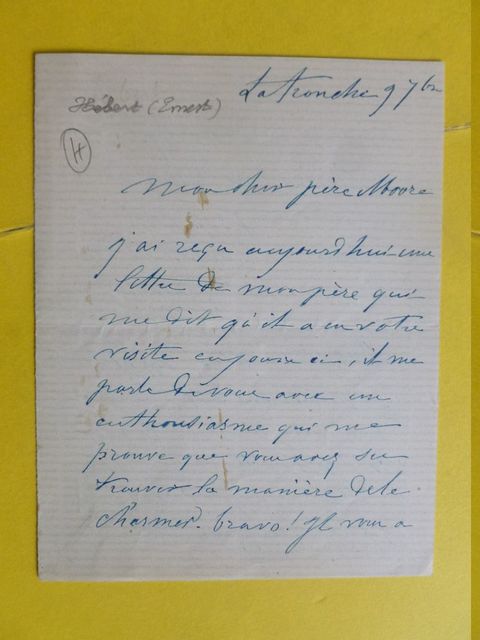 La Tronche 9 7bre
Hébert (Ernest)
H
Mon cher père Moore
j'ai reçu aujourd'hui une
lettre de mon père qui
me dit qu'il a eu votre
visite ces jours ci, il me
parle de vous avec un
enthousiasme qui me
prouve que vous avez su
trouver la manière de le
charmer. bravo! Il vous a